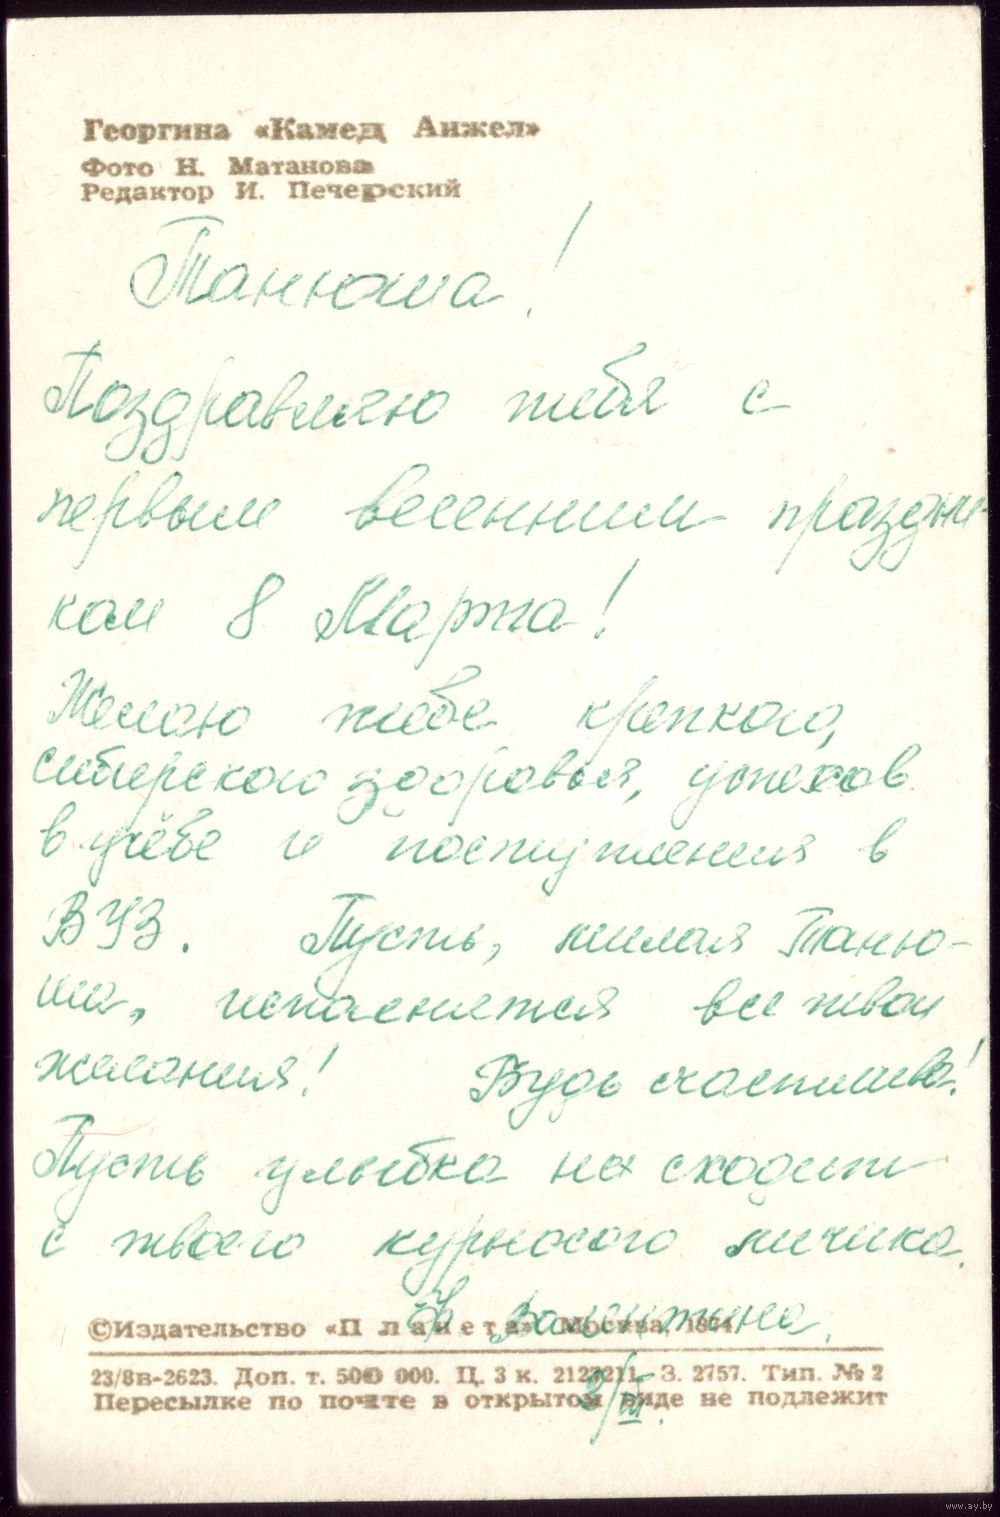 Георгина «Камед Анжел»
Фото Н. Матанова
Редактор И. Печерский
Танюша!
Поздравляю тебя с
первым весенним праздни-
ком 8 Марта!
Желаю тебе крепкого,
сибирского здоровья, успехов
в учёбе и поступления в
ВУЗ. Пусть, милая Таню-
ша, исполнятся все твои
желания! Будь счастлива!
Пусть улыбка не сходит
с твоего курносого личика.
Валентина.
©Издательство «Планета» Москва, 1974
23/8в-2623. Доп. т. 500 000. Ц. 3 к. З. 2757. Тип. № 2
Пересылке по почте в открытом виде не подлежит
8/III.
www.ay.by